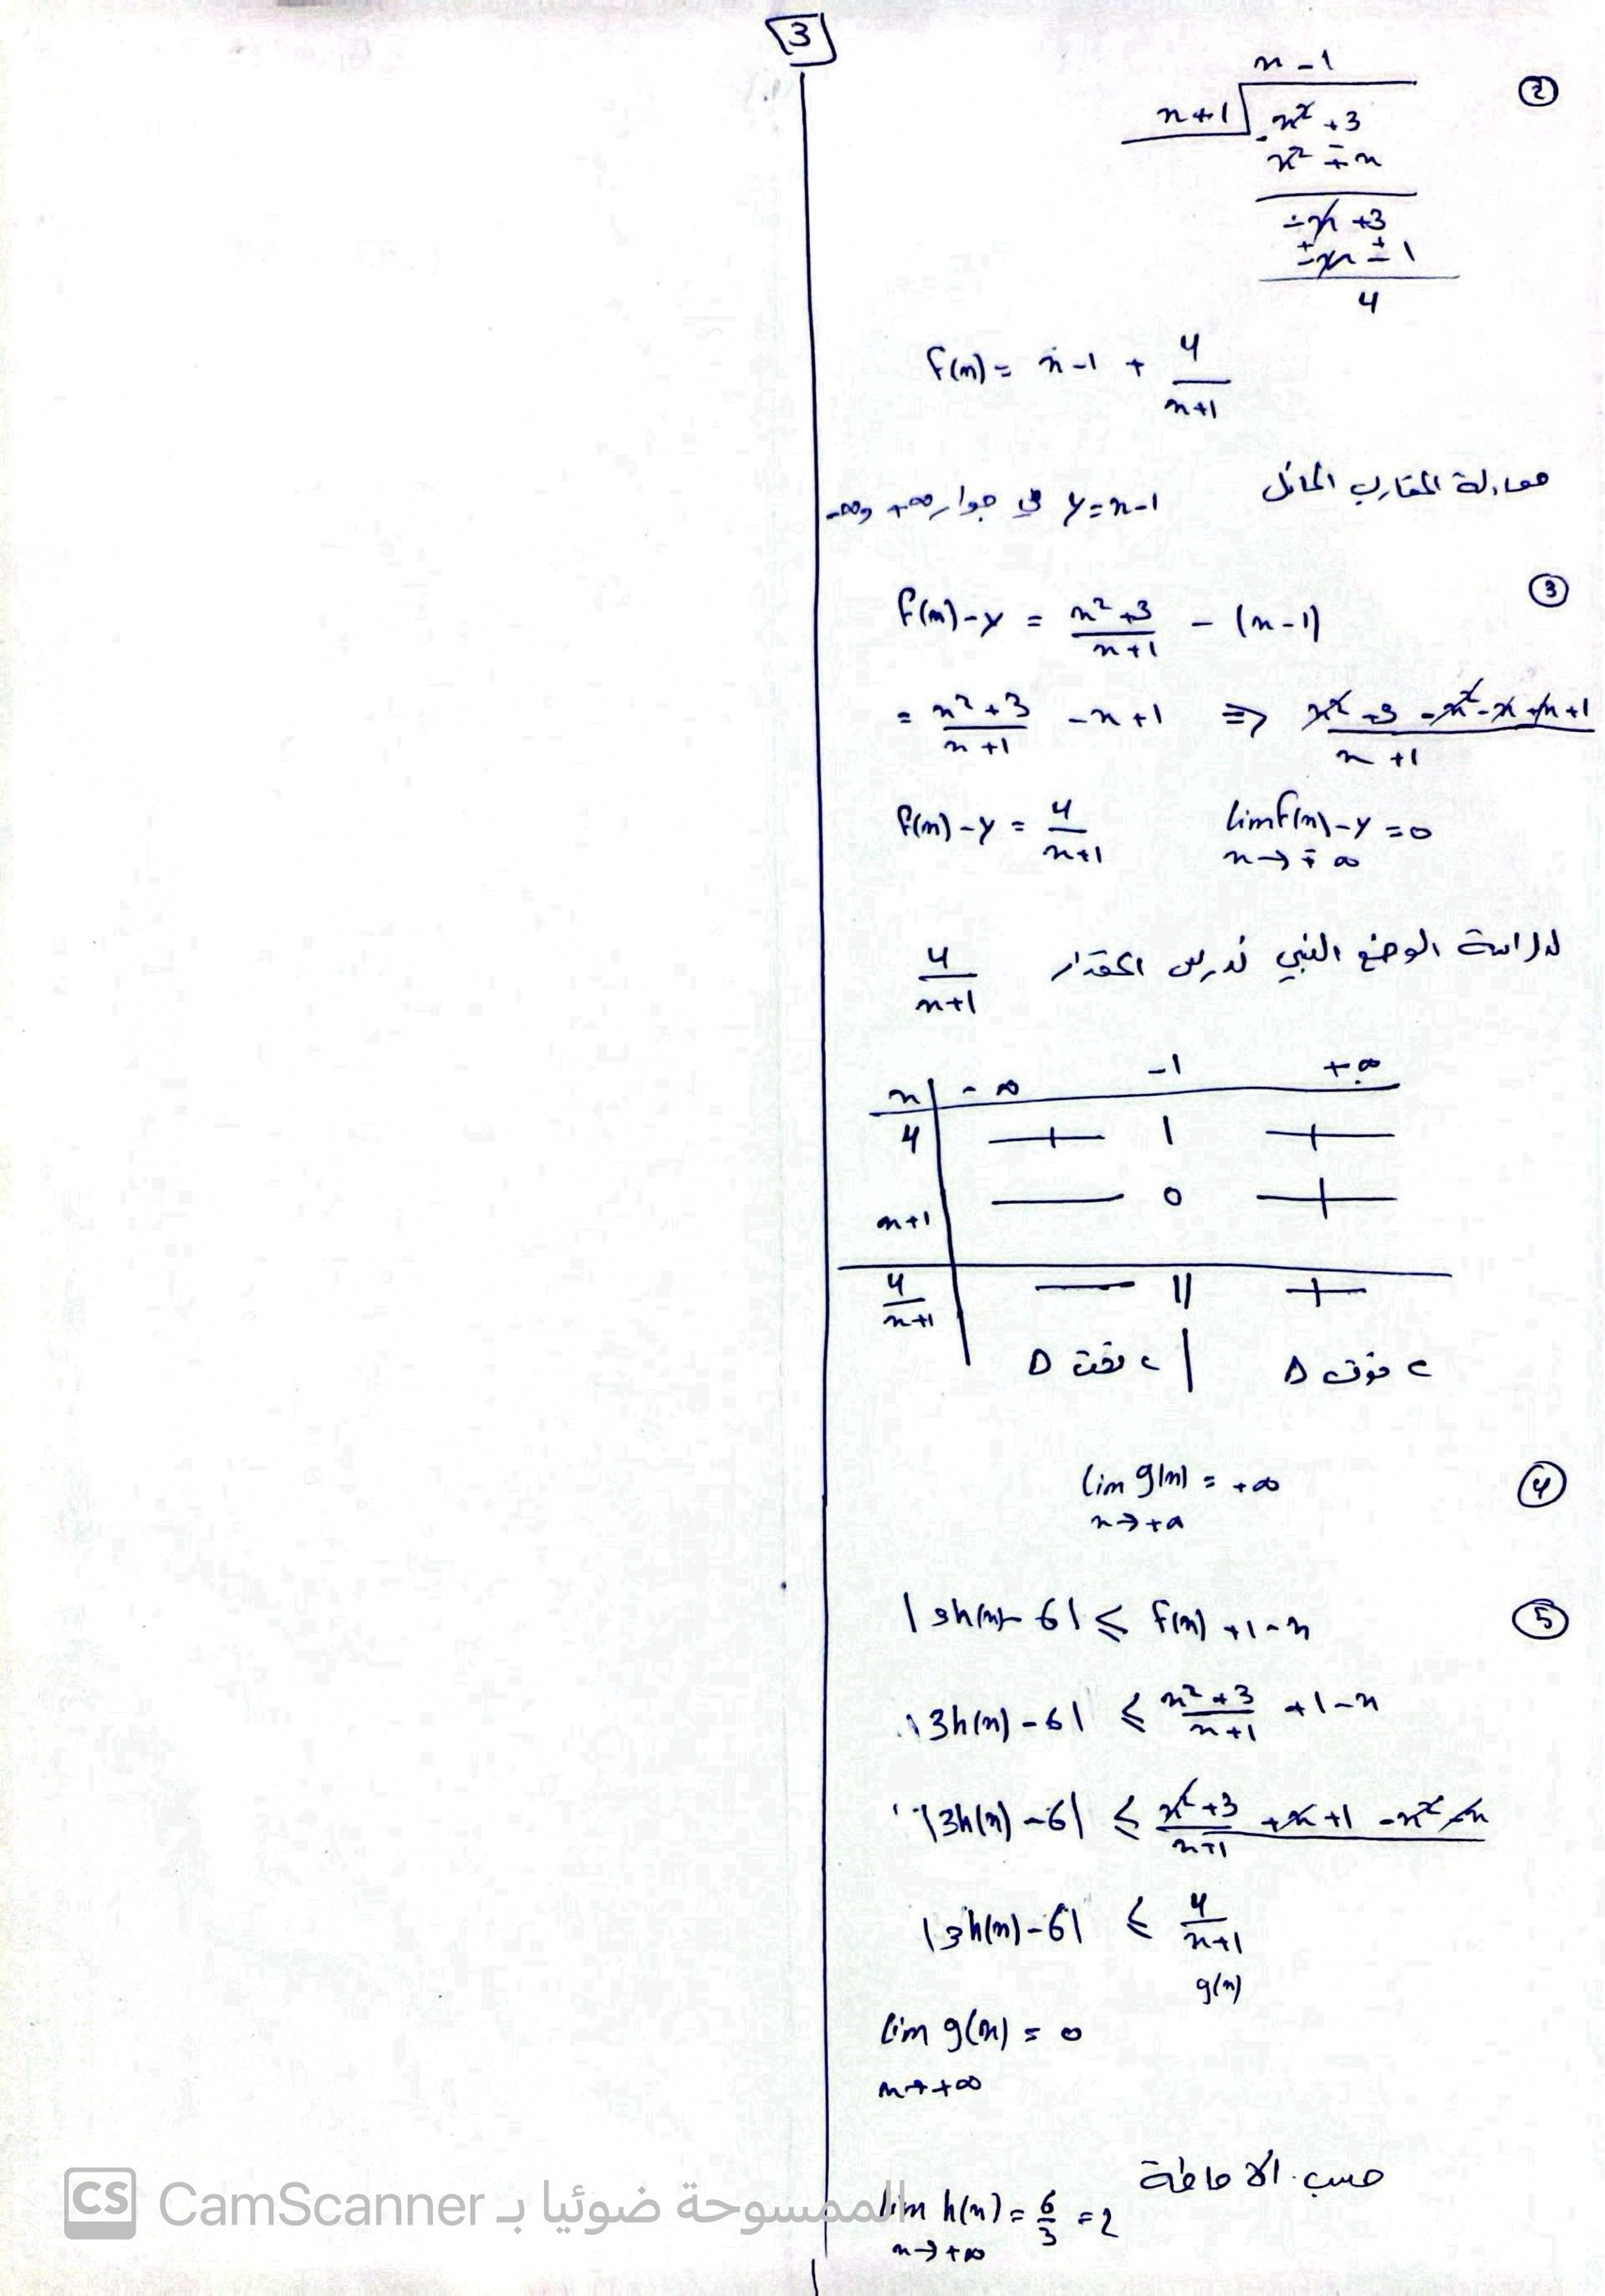 3
②
x - 1
x+1 | x² + 3
x² + x
-x + 3
-x - 1
4
f(x) = x - 1 + 4/(x+1)
معادلة المقارب المائل y = x-1 في جوار +∞ و -∞
③
f(x) - y = (x² + 3)/(x+1) - (x - 1)
= (x² + 3)/(x+1) - x + 1 ⇒ (x² + 3 - x² - x + x + 1)/(x+1)
f(x) - y = 4/(x+1) lim f(x) - y = 0
x → ∓∞
لدراسة الوضع النسبي ندرس المقدار 4/(x+1)
x | -∞ -1 +∞
4 | + | +
x+1 | - 0 +
4/(x+1) | - || +
C تحت Δ | C فوق Δ
④
lim g(x) = +∞
x → +∞
⑤
|3h(x) - 6| ≤ f(x) + 1 - x
|3h(x) - 6| ≤ (x² + 3)/(x+1) + 1 - x
|3h(x) - 6| ≤ (x² + 3 + x + 1 - x² - x)/(x+1)
|3h(x) - 6| ≤ 4/(x+1)
g(x)
lim g(x) = 0
x → +∞
حسب الاحاطة
lim h(x) = 6/3 = 2
x → +∞
CS CamScanner الممسوحة ضوئيا بـ